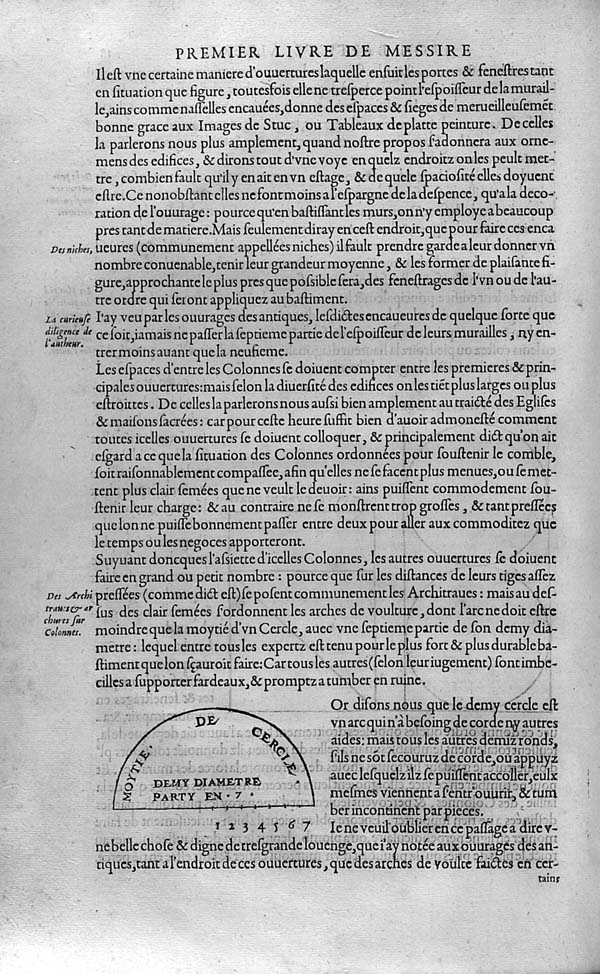 PREMIER LIVRE DE MESSIRE
Il est vne certaine maniere d'ouuertures laquelle ensuit les portes & fenestres tant
en situation que figure, toutesfois elle ne tresperce point l'espoisseur de la murail-
le, ains comme nasselles encauées, donne des espaces & sieges de merueilleusemẽt
bonne grace aux Images de Stuc, ou Tableaux de platte peinture. De celles
la parlerons nous plus amplement, quand nostre propos s'adonnera aux orne-
mens des edifices, & dirons tout d'vne voye en quelz endroitz on les peult met-
tre, combien fault qu'il y en ait en vn estage, & de quele spaciosité elles doyuent
estre. Ce nonobstant elles ne font moins a l'espargne de la despence, qu'a la deco-
ration de l'ouurage: pource qu'en bastissant les murs, on n'y employe a beaucoup
pres tant de matiere. Mais seulement diray en cest endroit, que pour faire ces enca
Des niches, ueures (communement appellées niches) il fault prendre garde a leur donner vn
nombre conuenable, tenir leur grandeur moyenne, & les former de plaisante fi-
gure, approchante le plus pres que possible sera, des fenestrages de l'vn ou de l'au-
tre ordre qui seront appliquez au bastiment.
La curieuse I'ay veu par les ouurages des antiques, lesdictes encaueures de quelque sorte que
diligence de ce soit, iamais ne passer la septieme partie de l'espoisseur de leurs murailles, ny en-
l'autheur. trer moins auant que la neufieme.
Les espaces d'entre les Colonnes se doiuent compter entre les premieres & prin-
cipales ouuertures: mais selon la diuersité des edifices on les tiẽt plus larges ou plus
estroittes. De celles la parlerons nous aussi bien amplement au traicté des Eglises
& maisons sacrées: car pour ceste heure suffit bien d'auoir admonesté comment
toutes icelles ouuertures se doiuent colloquer, & principalement dict qu'on ait
esgard a ce que la situation des Colonnes ordonnées pour soustenir le comble,
soit raisonnablement compassée, afin qu'elles ne se facent plus menues, ou se met-
tent plus clair semées que ne veult le deuoir: ains puissent commodement sou-
stenir leur charge: & au contraire ne se monstrent trop grosses, & tant pressées
que lon ne puisse bonnement passer entre deux pour aller aux commoditez que
le temps ou les negoces apporteront.
Suyuant doncques l'assiette d'icelles Colonnes, les autres ouuertures se doiuent
faire en grand ou petit nombre: pource que sur les distances de leurs tiges assez
Des Archi pressées (comme dict est) se posent communement les Architraues: mais au des-
traues & ar sus des clair semées s'ordonnent les arches de voulture, dont l'arc ne doit estre
chures sur moindre que la moytié d'vn Cercle, auec vne septieme partie de son demy dia-
Colonnes. metre: lequel entre tous les expertz est tenu pour le plus fort & plus durable ba-
stiment que lon sçauroit faire: Car tous les autres (selon leur iugement) sont imbe-
cilles a supporter fardeaux, & promptz a tumber en ruine.
MOYTIE. DE CERCLE
DEMY DIAMETRE
PARTY EN .7.
1 2 3 4 5 6 7
Or disons nous que le demy cercle est
vn arc qui n'à besoing de corde ny autres
aides: mais tous les autres demiz ronds,
s'ilz ne sõt secouruz de corde, ou appuyz
auec lesquelz ilz se puissent accoller, eulx
mesmes viennent a s'entr'ouurir, & tum
ber incontinent par pieces.
Ie ne veuil oublier en ce passage a dire v-
ne belle chose & digne de tresgrande louenge, que i'ay notée aux ouurages des an-
tiques, tant a l'endroit de ces ouuertures, que des arches de voulte faictes en cer-
tains